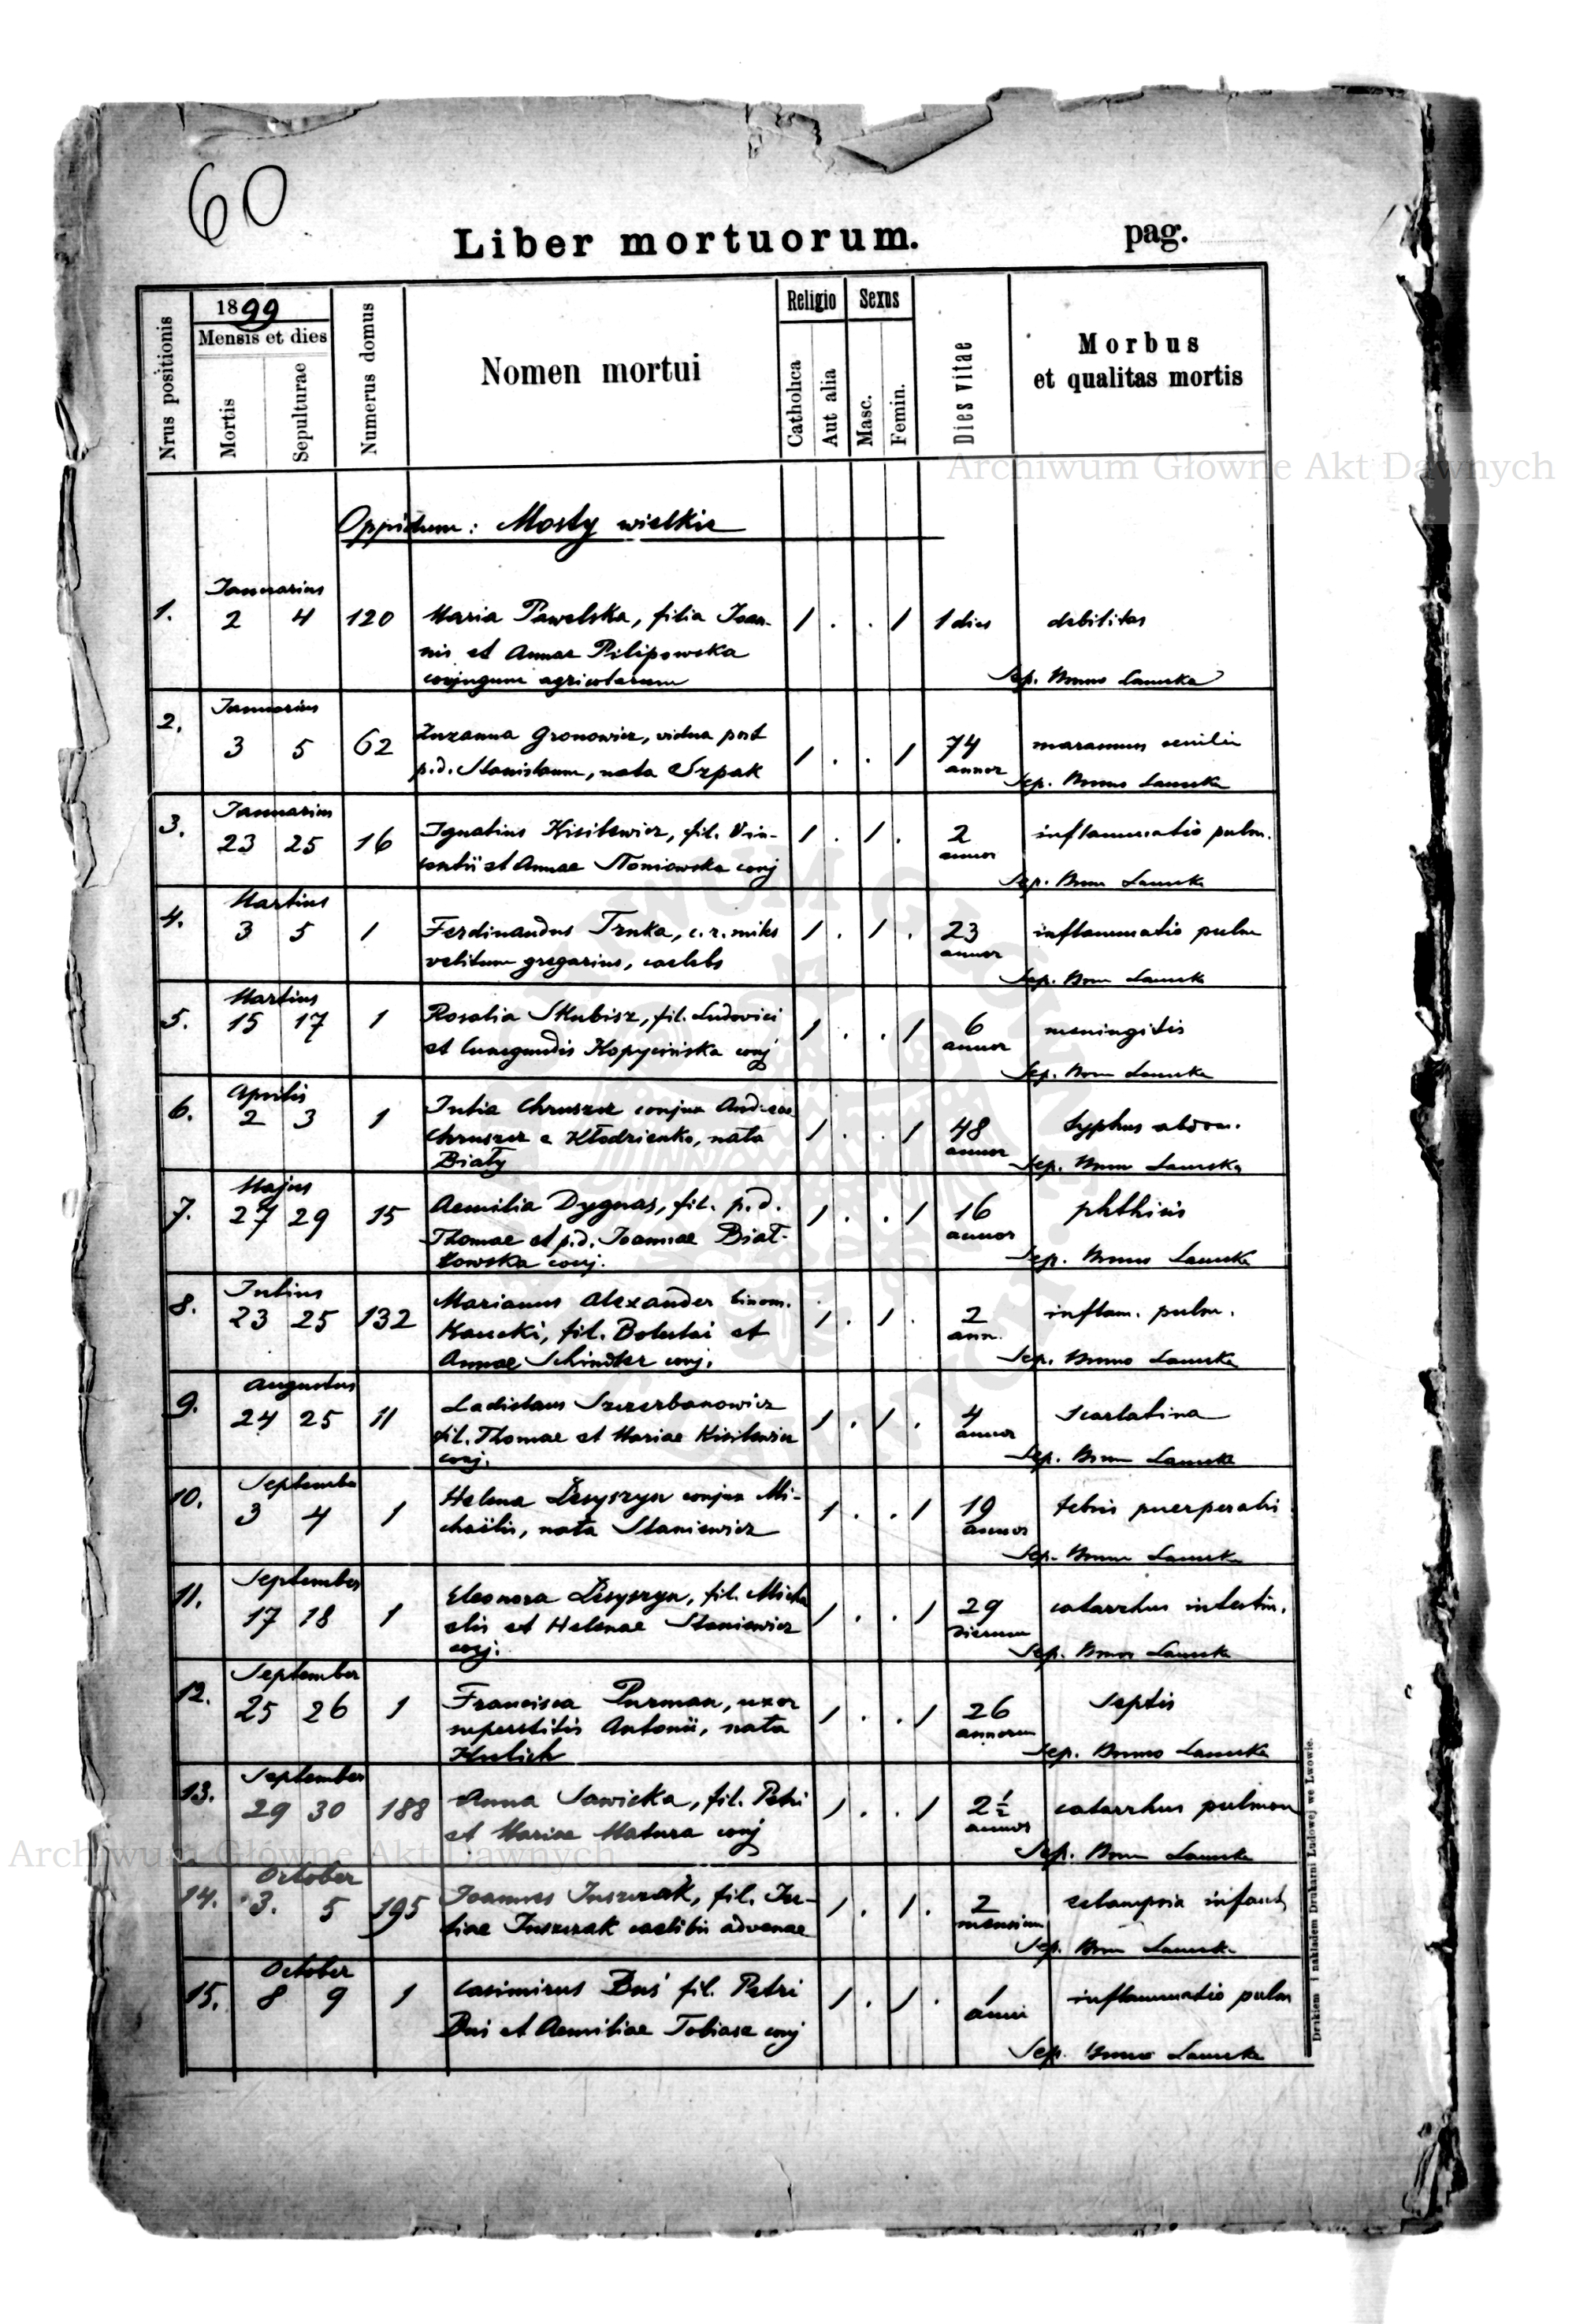 60
Liber mortuorum. pag.
Nrus positionis
1899
Mensis et dies
Mortis
Sepulturae
Numerus domus
Nomen mortui
Religio
Catholica
Aut alia
Sexus
Masc.
Femin.
Dies vitae
Morbus
et qualitas mortis
Archiwum Główne Akt Dawnych
Oppidum: Mosty wielkie
Januarius
1. 2 4 120 Maria Pawelska, filia Joan- 1 . . 1 1 dies debilitas
nis et Annae Pilipowska
conjugum agricolarum Sep. Bruno
Januarius
2. 3 5 62 Zuzanna Gronowicz, vidua post 1 . . 1 74 marasmus senilis
p.d. Stanislaum, nata Szpak annor Sep. Bruno
Januarius
3. 23 25 16 Ignatius Kisilewicz, fil. Vin- 1 . 1 . 2 inflammatio pulm.
centii et Annae Słoniowska conj annor Sep. Brun
Martius
4. 3 5 1 Ferdinandus Trnka, c. r. miles 1 . 1 . 23 inflammatio pulm
velitum gregarius, caelebs annor Sep. Brun
Martius
5. 15 17 1 Rosalia Skubisz, fil. Ludovici 1 . . 1 6 meningitis
et Cunegundis Kopycińska conj annor Sep. Brun
Aprilis
6. 2 3 1 Julia Chruszcz conjux Andreae 1 . . 1 48 typhus abdom.
Chruszcz e Kłodzienko, nata annor Sep. Brun
Biały
Majus
7. 27 29 15 Aemilia Dygnas, fil. p. d. 1 . . 1 16 phthisis
Thomae et p.d. Joannae Biał- annor
kowska conj. Sep. Bruno
Julius
8. 23 25 132 Marianus Alexander binom. 1 . 1 . 2 inflam. pulm.
fil. et ann.
Annae Schindler conj. Sep. Bruno
Augustus
9. 24 25 11 Ladislaus Szczerbanowicz 1 . 1 . 4 Scarlatina
fil. Thomae et Mariae Kisilewicz annor
conj. Sep. Brun
September
10. 3 4 1 Helena conjux Mi- 1 . . 1 19 febris puerperalis
chaëlis, nata Staniewicz annor
Sep. Brun
September
11. 17 18 1 Eleonora fil. Micha 1 . . 1 29 catarrhus intestin.
elis et Helenae Staniewicz dierum
conj. Sep. Brun
September
12. 25 26 1 Francisca Purman, uxor 1 . . 1 26 Septis
superstitis Antonii, nata annorum
Kulich Sep. Bruno
September
13. 29 30 188 Anna Sawicka, fil. Petri 1 . . 1 2½ catarrhus pulmon
et Mariae Matura conj annor Sep. Brun
Archiwum Główne Akt Dawnych
October
14. 3. 5 195 Joannes Juszczak, fil. Ju- 1 . 1 . 2 eclampsia infant
liae Juszczak caelibis advenae mensium Sep. Brun
October
15. 8 9 1 Casimirus Buś fil. Petri 1 . 1 . 1 inflammatio pulm
Buś et Aemiliae Tobiasz conj anni
Sep. Bruno
Drukiem i nakładem Drukarni Ludowej we Lwowie.